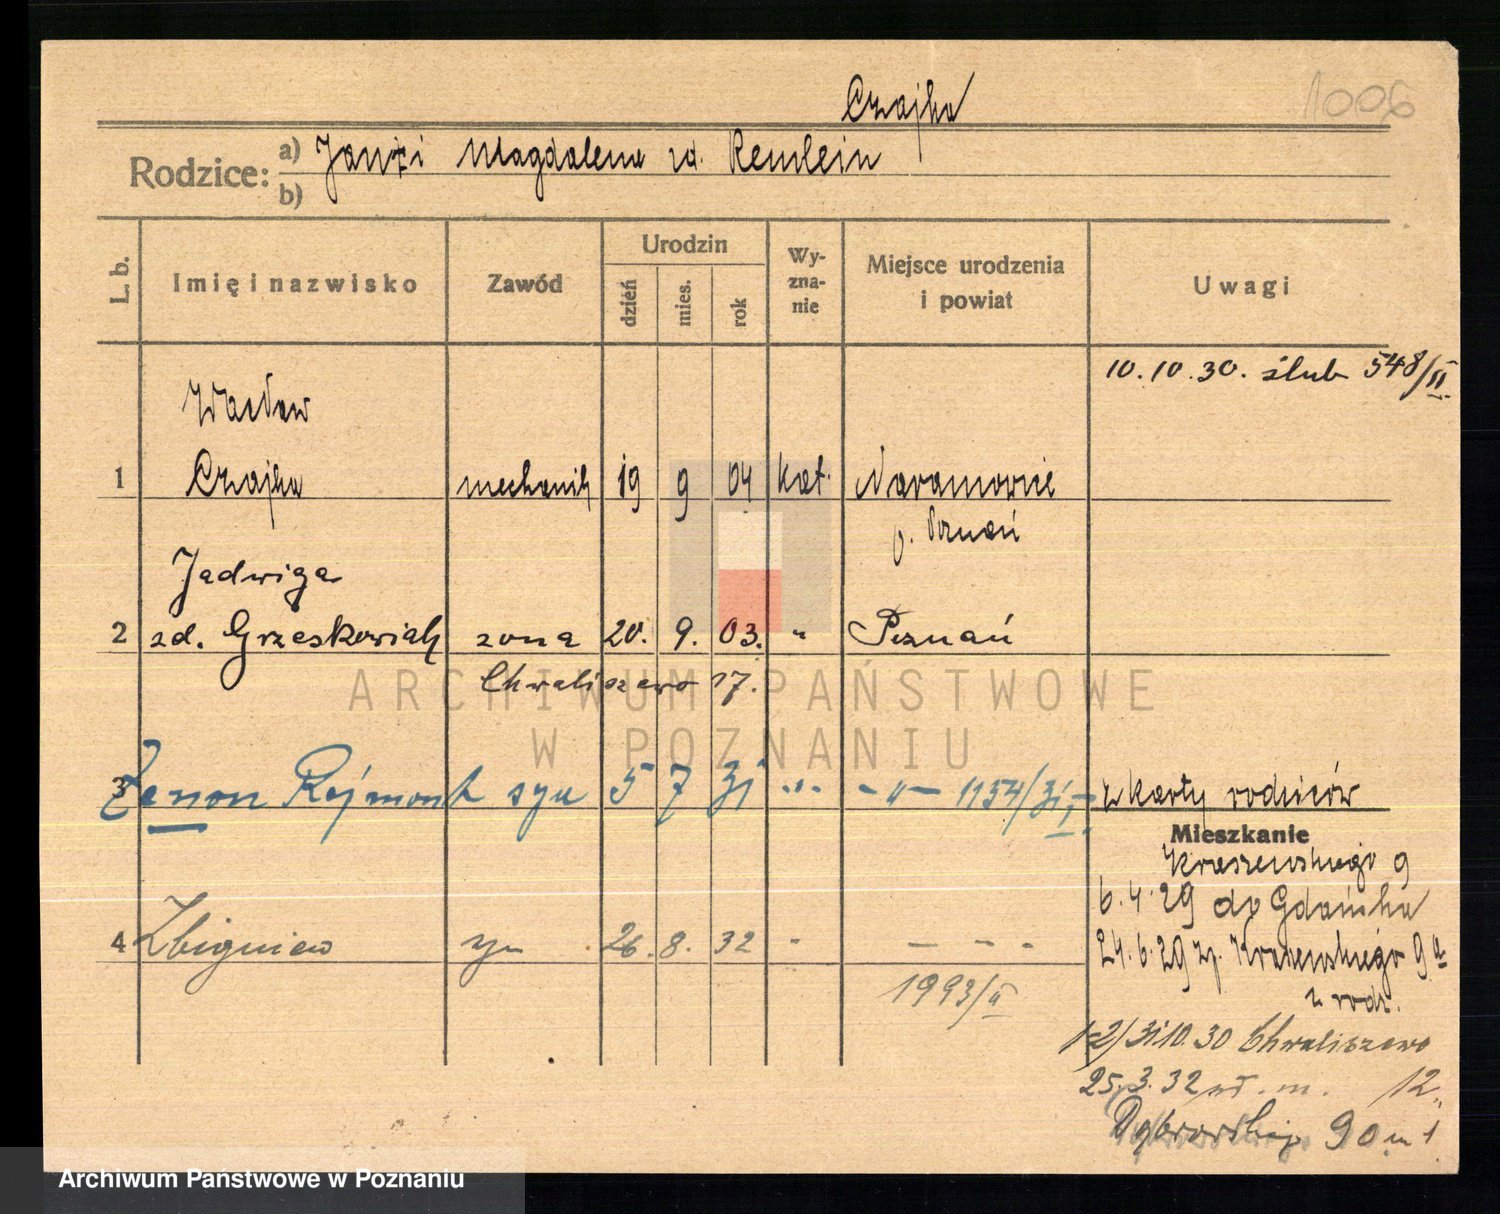 1006
Czajka
Rodzice: a) Jan i Magdalena zd. Remlein
b)
L. b.
Imię i nazwisko
Zawód
Urodzin
dzień
mies.
rok
Wy-
zna-
nie
Miejsce urodzenia
i powiat
Uwagi
10.10.30. ślub 548/II.
Wacław
1 Czajka mechanik 19 9 04 kat. Naramowic
p. Poznań
Jadwiga
2 zd. Grzeskowiak żona 20. 9. 03. " Poznań
Chwaliszewo 17.
3 Zenon Rejmont syn 5 7 31 -"- -"- 1154/31 I. z karty rodziców
Mieszkanie
Kraszewskiego 9
6.4.29 do Gdańska
4 Zbigniew syn 26. 8. 32 - - - -
24.6.29 z Kraszewskiego 9a
1993/II
z rodz.
1-2/31.10.30 Chwaliszewo
25.3.32 wł. m. 12.
Dąbrowskiego 90 m 1
ARCHIWUM PAŃSTWOWE
W POZNANIU
Archiwum Państwowe w Poznaniu